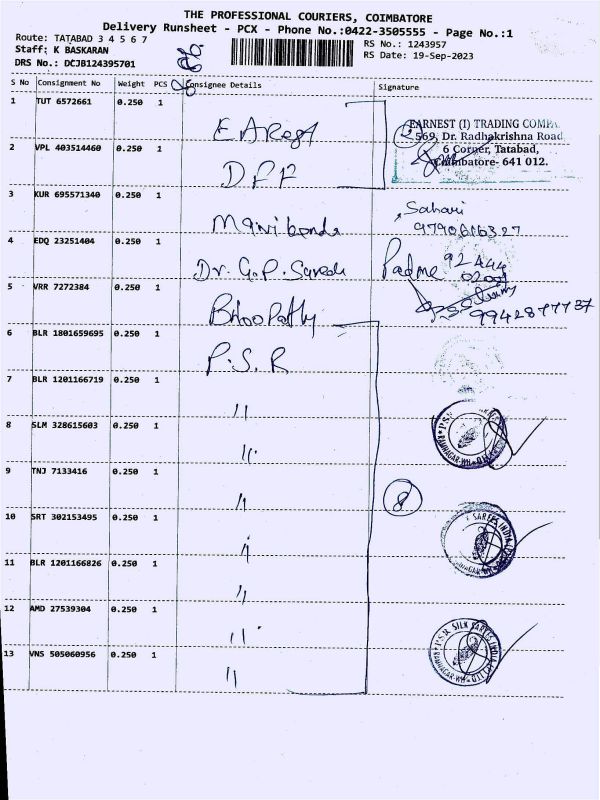 THE PROFESSIONAL COURIERS, COIMBATORE
Delivery Runsheet - PCX - Phone No.:0422-3505555 - Page No.:1
Route: TATABAD 3 4 5 6 7
Staff: K BASKARAN
DRS No.: DCJB124395701
RS No.: 1243957
RS Date: 19-Sep-2023
S No Consignment No Weight PCS Consignee Details Signature
1 TUT 6572661 0.250 1
EARNEST (I) TRADING COMPA
569, Dr. Radhakrishna Road
6 Corner, Tatabad,
Coimbatore- 641 012.
2 VPL 403514460 0.250 1 DFF
3 KUR 695571340 0.250 1 Sahari
4 EDQ 23251404 0.250 1 Dr. G.P. Suresh Padme
5 VRR 7272384 0.250 1 Bhoopathy 9942877737
6 BLR 1801659695 0.250 1 P.S.R
7 BLR 1201166719 0.250 1 "
8 SLM 328615603 0.250 1 "
9 TNJ 7133416 0.250 1 " 8
10 SRT 302153495 0.250 1 "
11 BLR 1201166826 0.250 1 "
12 AMD 27539304 0.250 1 "
13 VNS 505060956 0.250 1 "